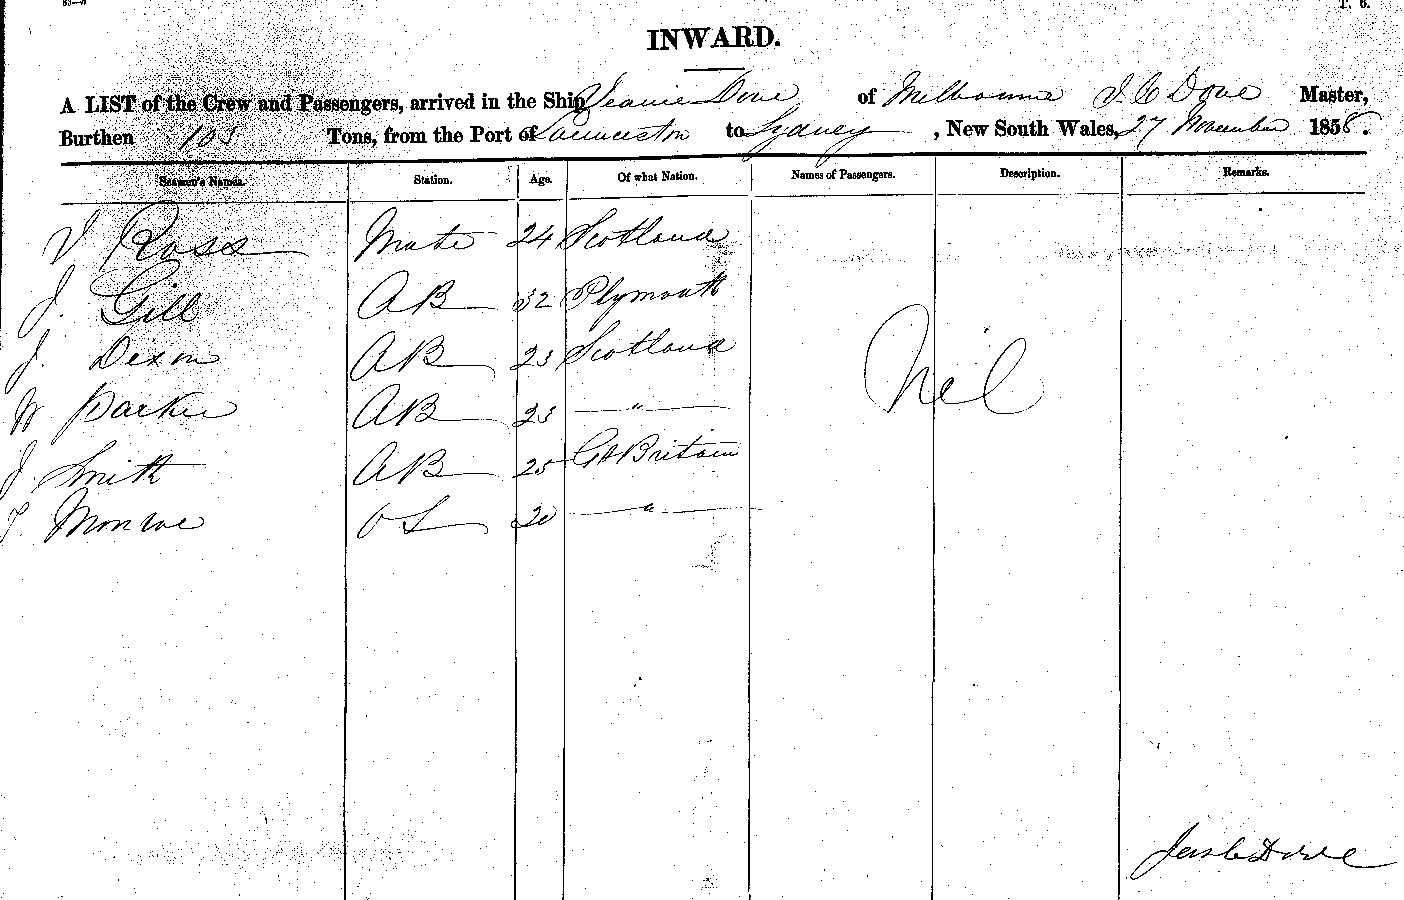 INWARD.
A LIST of the Crew and Passengers, arrived in the Ship Jeanie Dove of Melbourne J. C Dove Master,
Burthen 103 Tons, from the Port of Launceston to Sydney, New South Wales, 27 November 1858.
Seamen's Names. Station. Age. Of what Nation. Names of Passengers. Description. Remarks.
J Ross Mate 24 Scotland
J. Gill AB 32 Plymouth
J. Dixon AB 23 Scotland
W Parker AB 23 "
Nil
J. Smith AB 25 Gt Britain
T Monroe OS 20 "
Dove